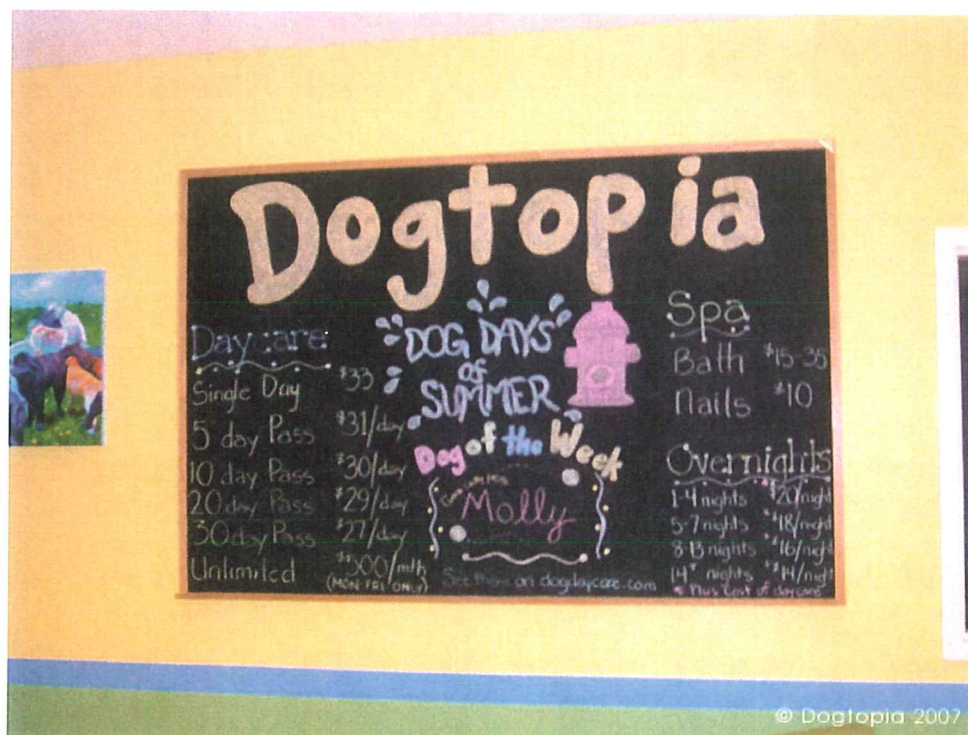 Dogtopia
Daycare
Single Day $33
5 day Pass $31/day
10 day Pass $30/day
20 day Pass $29/day
30 day Pass $27/day
Unlimited $500/mth
(MON-FRI ONLY)
DOG DAYS
OF
SUMMER
Dog of the Week
Molly
See them on dogdaycare.com
Spa
Bath $15-35
Nails $10
Overnights
1-4 nights *$20/night
5-7 nights *$18/night
8-13 nights *$16/night
14+ nights *$14/night
* Plus Cost of daycare
© Dogtopia 2007